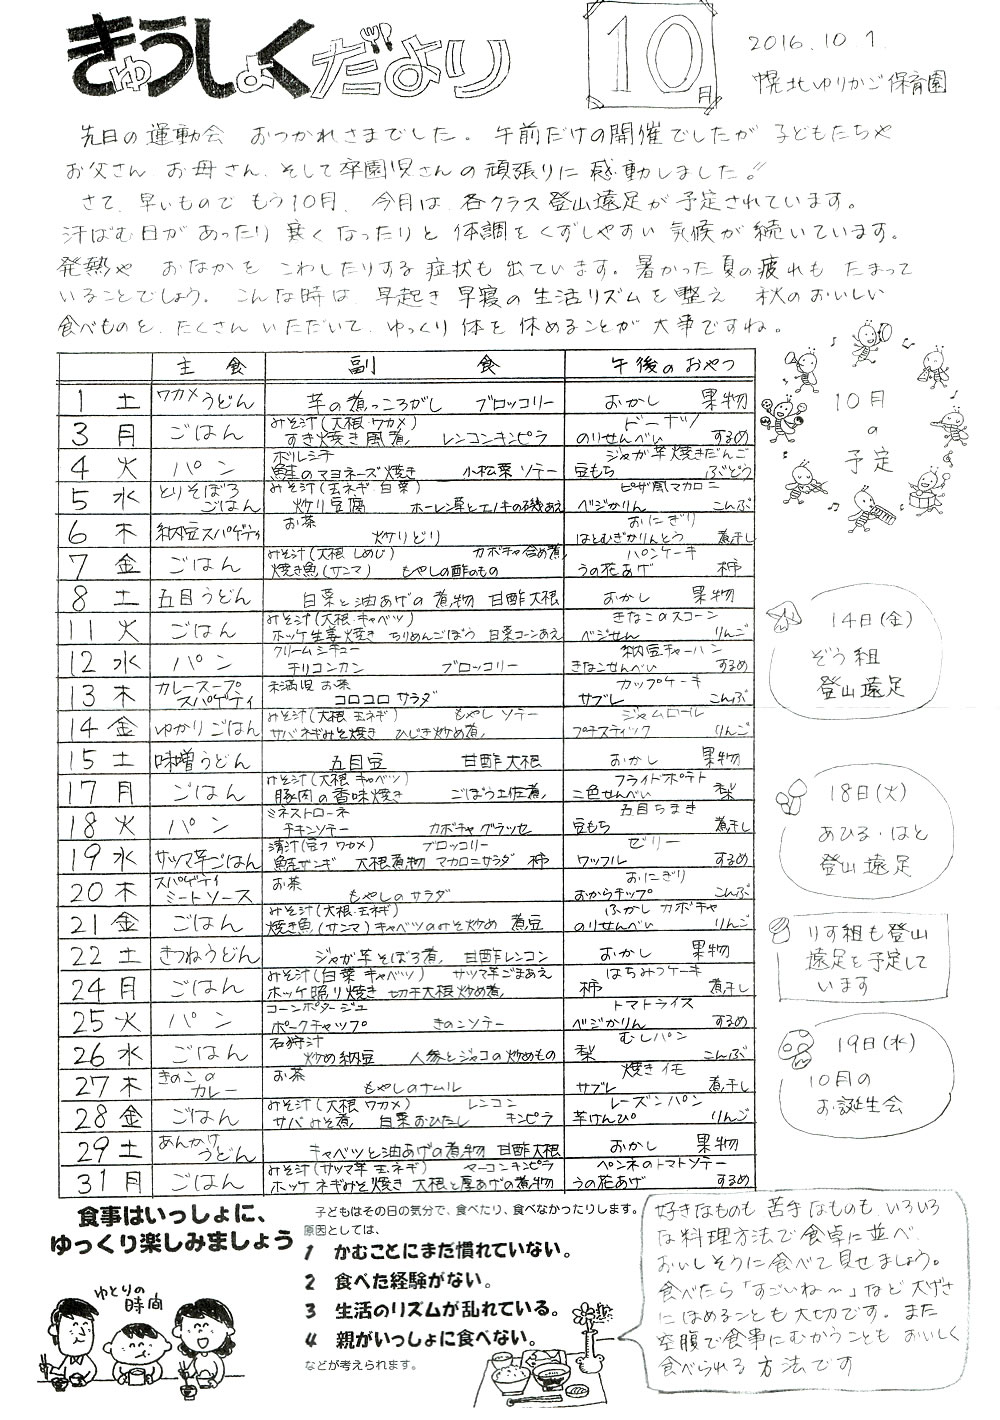 きゅうしょくだより
10月
2016.10.1.
幌北ゆりかご保育園
先日の運動会 おつかれさまでした。午前だけの開催でしたが 子どもたちや
お父さん、お母さん、そして卒園児さんの頑張りに感動しました!!
さて、早いもので もう10月、今月は、各クラス登山遠足が予定されています。
汗ばむ日が あったり 寒くなったりと 体調をくずしやすい 気候が続いています。
発熱や おなかを こわしたりする症状も出ています。暑かった夏の疲れも たまって
いることでしょう。こんな時は、早起き早寝の生活リズムを整え 秋のおいしい
食べものを、たくさん いただいて、ゆっくり体を休めることが大事ですね。
主食 副食 午後のおやつ
1 土 ワカメうどん 芋の煮っころがし ブロッコリー おかし 果物
3 月 ごはん みそ汁(大根 ワカメ) すき焼き風煮 レンコンキンピラ ドーナツ のりせんべい するめ
4 火 パン ボルシチ 鮭のマヨネーズ焼き 小松菜ソテー ジャガ芋焼きだんご 豆もち ぶどう
5 水 とりそぼろごはん みそ汁(玉ネギ 白菜) 炒り豆腐 ホーレン草とエノキの磯あえ ピザ風マカロニ ベジかりん こんぶ
6 木 納豆スパゲティ お茶 炒りどり おにぎり はとむぎかりんとう 煮干し
7 金 ごはん みそ汁(大根 しめじ) カボチャ含め煮 焼き魚(サンマ) もやしの酢のもの パンケーキ うの花あげ 柿
8 土 五目うどん 白菜と油あげの煮物 甘酢大根 おかし 果物
11 火 ごはん みそ汁(大根 キャベツ) ホッケ生姜焼き ちりめんごぼう 白菜コーンあえ きなこのスコーン ベジせん りんご
12 水 パン クリームシチュー チリコンカン ブロッコリー 納豆チャーハン きなこせんべい するめ
13 木 カレースープスパゲティ 未満児 お茶 コロコロサラダ カップケーキ サブレ こんぶ
14 金 ゆかりごはん みそ汁(大根 玉ネギ) もやしソテー サバネギみそ焼き ひじき炒め煮 ジャムロール プチスティック りんご
15 土 味噌うどん 五目豆 甘酢大根 おかし 果物
17 月 ごはん みそ汁(大根 キャベツ) 豚肉の香味焼き ごぼう土佐煮 フライドポテト 二色せんべい 梨
18 火 パン ミネストローネ チキンソテー カボチャグラッセ 五目ちまき 豆もち 煮干し
19 水 サツマ芋ごはん 清汁(豆フ ワカメ) ブロッコリー 鮭ザンギ 大根煮物 マカロニサラダ 柿 ゼリー ワッフル するめ
20 木 スパゲティミートソース お茶 もやしのサラダ おにぎり おからチップ こんぶ
21 金 ごはん みそ汁(大根・玉ネギ) 焼き魚(サンマ) キャベツのみそ炒め 煮豆 ふかしカボチャ のりせんべい りんご
22 土 きつねうどん ジャガ芋そぼろ煮 甘酢レンコン おかし 果物
24 月 ごはん みそ汁(白菜 キャベツ) サツマ芋ごまあえ ホッケ照り焼き 切干大根炒め煮 はちみつケーキ 柿 煮干し
25 火 パン コーンポタージュ ポークチャップ きのこソテー トマトライス ベジかりん するめ
26 水 ごはん 石狩汁 炒め納豆 人参とジャコの炒めもの むしパン 梨 こんぶ
27 木 きのこのカレー お茶 もやしのナムル 焼きイモ サブレ 煮干し
28 金 ごはん みそ汁(大根 ワカメ) レンコンキンピラ サバみそ煮 白菜おひたし レーズンパン 芋けんぴ りんご
29 土 あんかけうどん キャベツと油あげの煮物 甘酢大根 おかし 果物
31 月 ごはん みそ汁(サツマ芋 玉ネギ) マーコンキンピラ ホッケネギみそ焼き 大根と厚あげの煮物 ペンネのトマトソテー うの花あげ するめ
10月
の
予定
14日(金)
ぞう組
登山遠足
18日(火)
あひる・はと
登山遠足
りす組も登山
遠足を予定して
います
19日(水)
10月の
お誕生会
食事はいっしょに、
ゆっくり楽しみましょう
ゆとりの
時間
子どもはその日の気分で、食べたり、食べなかったりします。
原因としては、
1 かむことにまだ慣れていない。
2 食べた経験がない。
3 生活のリズムが乱れている。
4 親がいっしょに食べない。
などが考えられます。
好きなものも 苦手なものも いろいろ
な料理方法で食卓に並べ、
おいしそうに食べて見せましょう。
食べたら「すごいね〜」など 大げさ
にほめることも大切です。また
空腹で食事にむかうことも おいしく
食べられる方法です